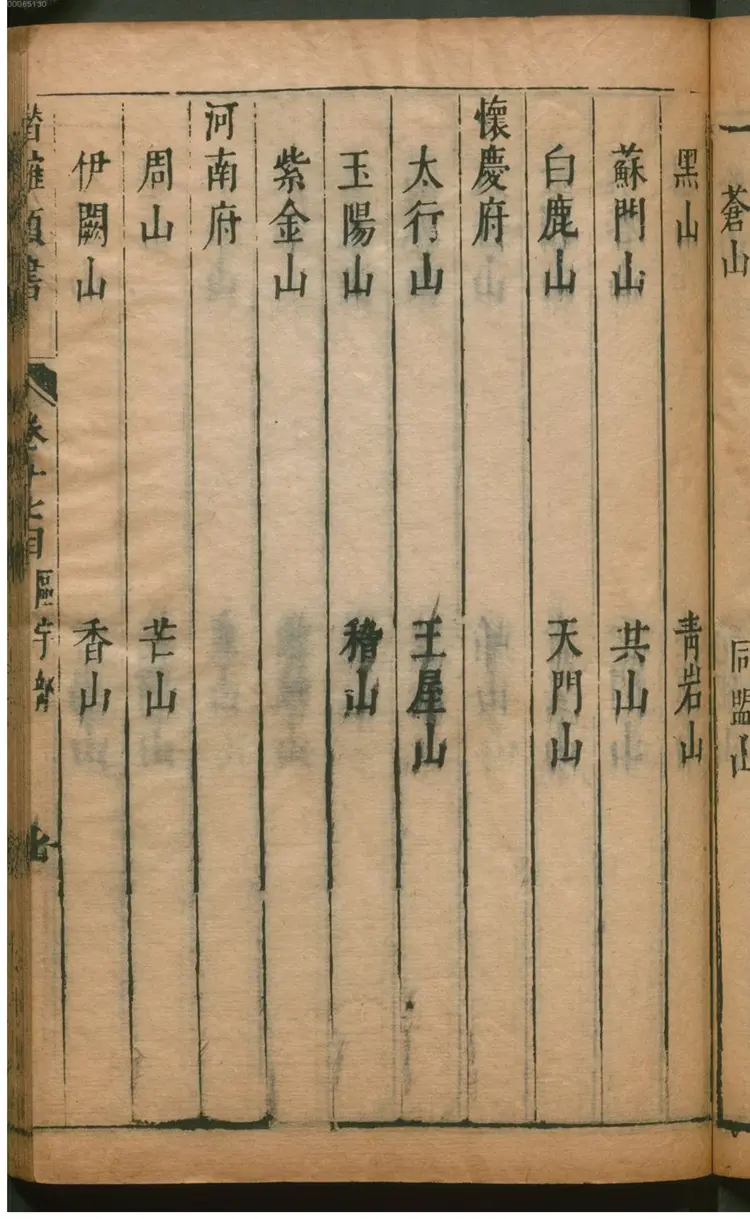 00065130
一
蒼山 同盟山
黑山 青岩山
蘇門山 共山
白鹿山 天門山
懷慶府
太行山 王屋山
玉陽山 稽山
紫金山
河南府
周山 芒山
伊闕山 香山
潛確類書 卷十七目 區宇部 七